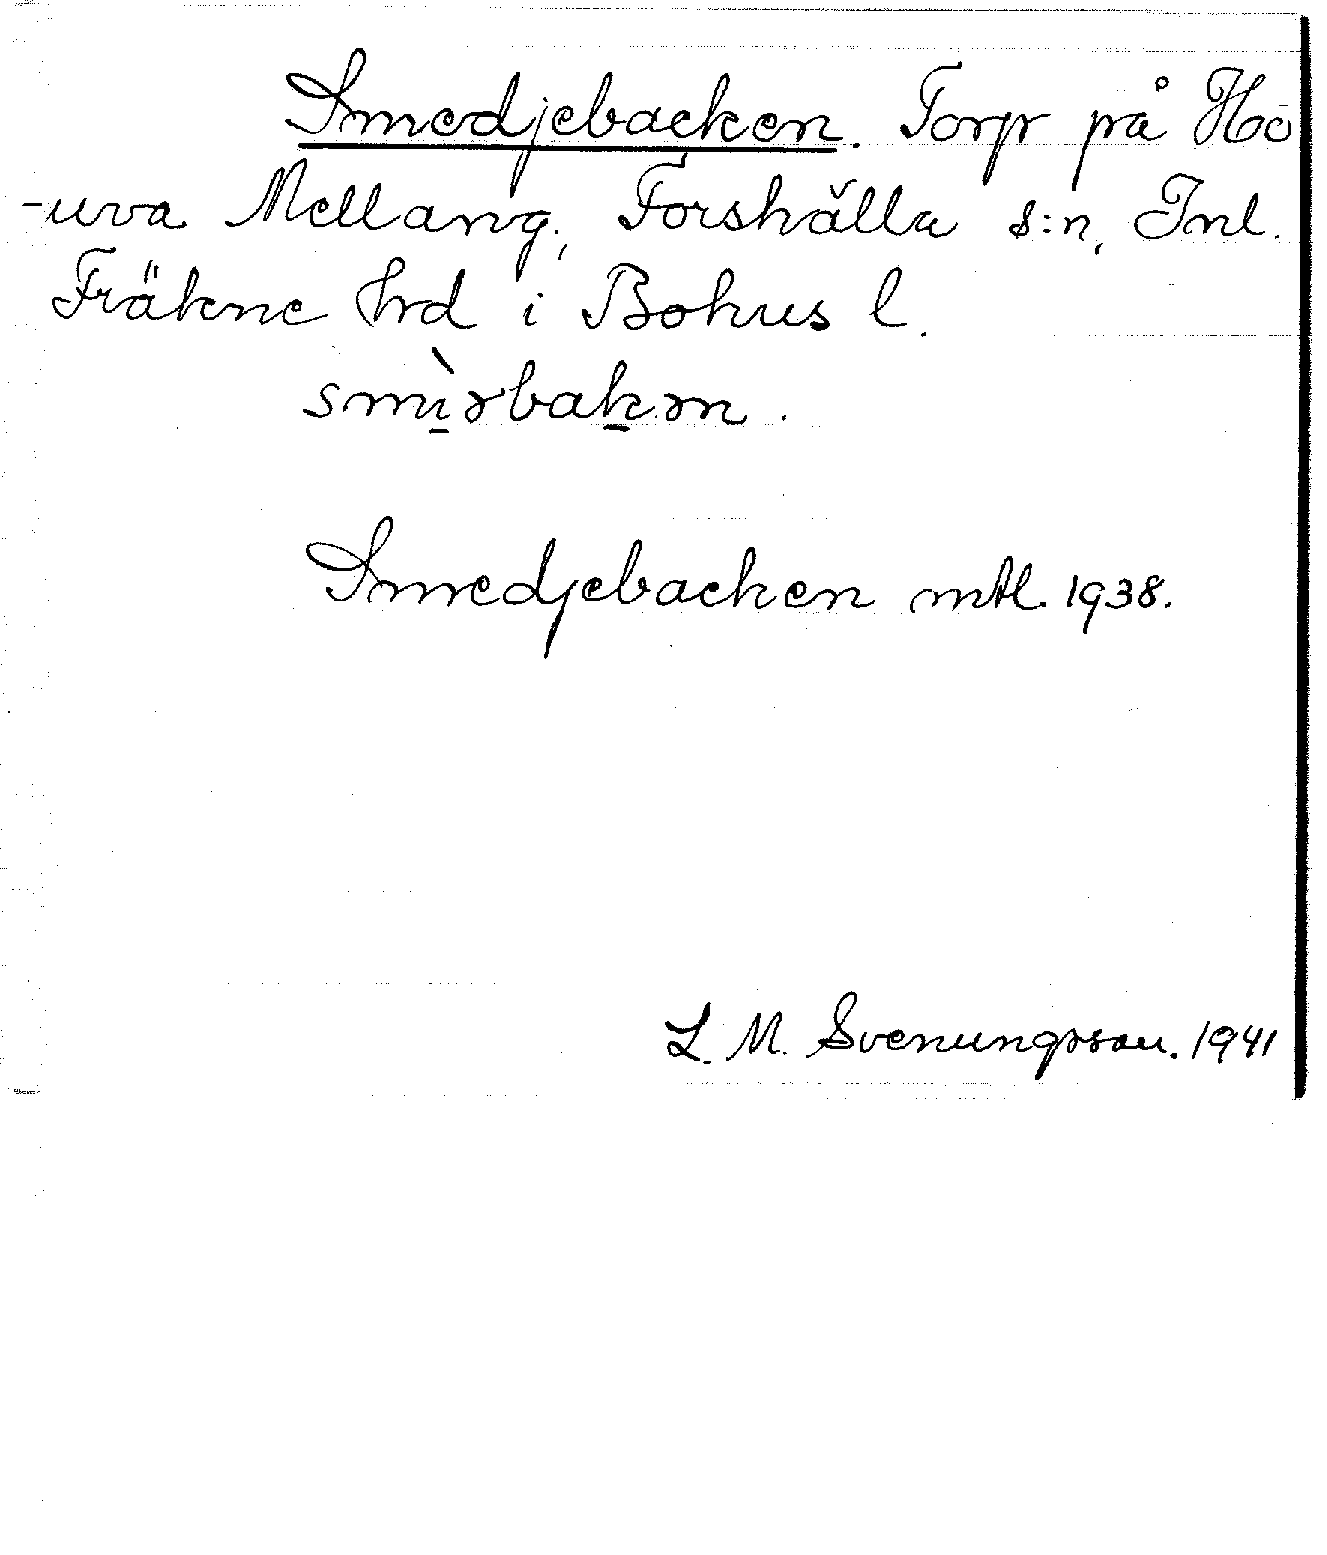 Smedjebacken. Torp på Hö
-uva Mellang., Forshälla s:n, Inl.
Fräkne hrd i Bohus l.
smı̀rbakrn.
Smedjebacken mtl. 1938.
L. M. Svenungsson. 1941